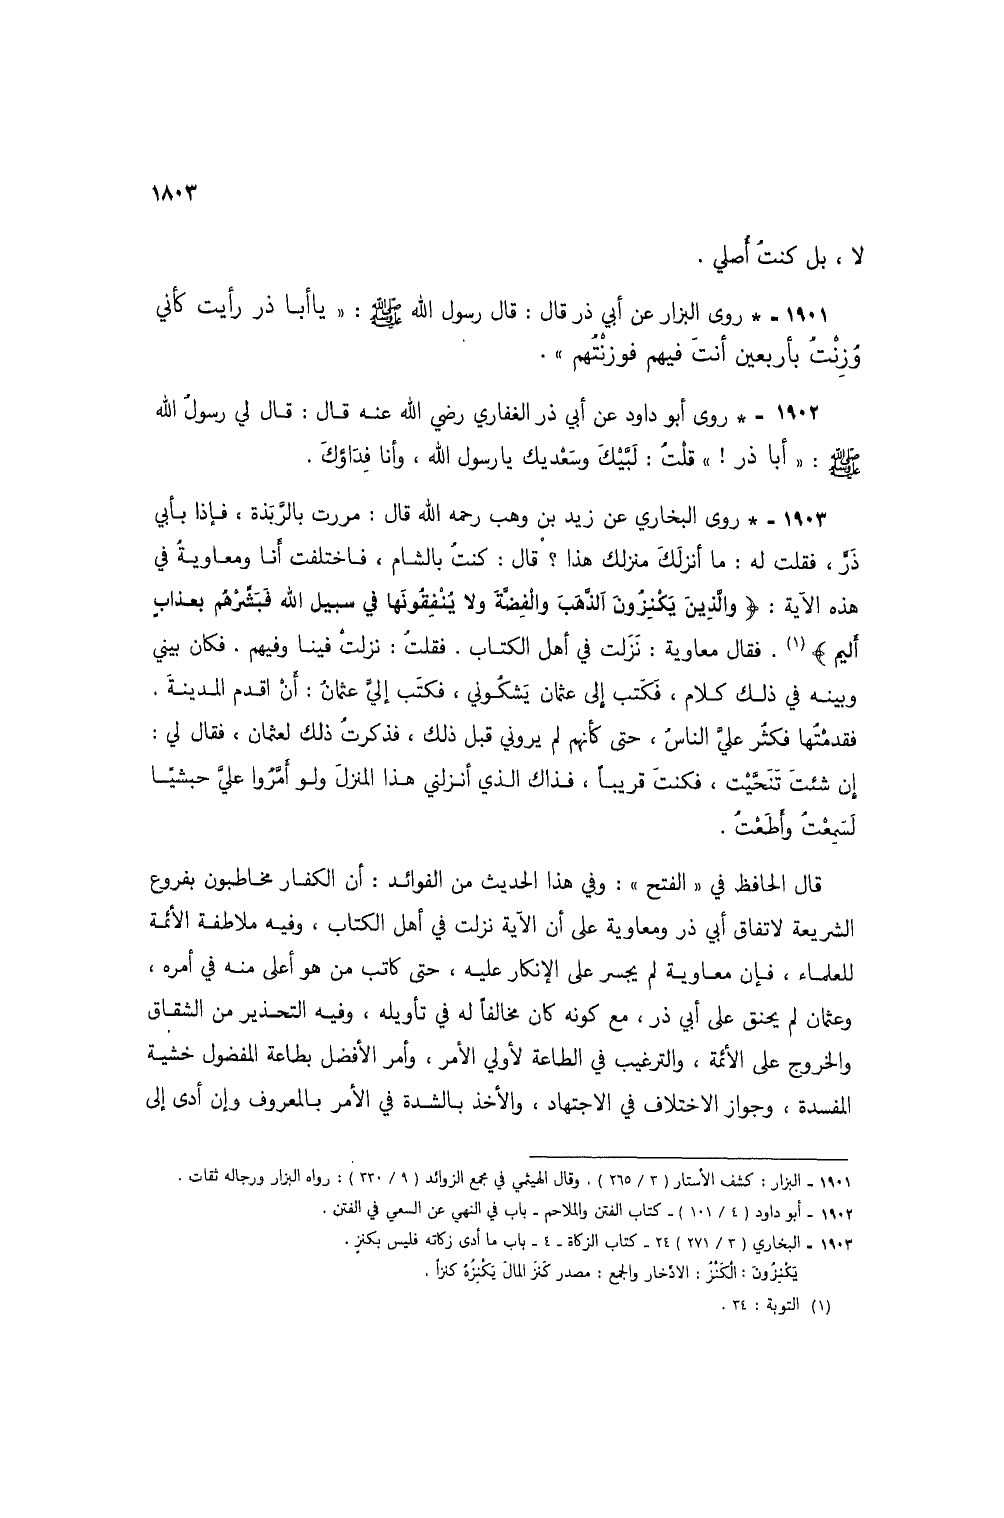 ١٨٠٣
لا ، بل كنتُ أُصلي .
١٩٠١ - * روى البزار عن أبي ذر قال : قال رسول الله ﷺ : « ياأبا ذر رأيت كأني
وُزِنْتُ بأربعين أنتَ فيهم فوزنْتُهم » .
١٩٠٢ - * روى أبو داود عن أبي ذر الغفاري رضي الله عنه قال : قال لي رسولُ الله
ﷺ : « أبا ذر ! » قلْتُ : لَبَّيْكَ وسَعْديك يارسول الله ، وأنا فِدَاؤكَ .
١٩٠٣ - * روى البخاري عن زيد بن وهب رحمه الله قال : مررت بالرَّبَذة ، فإذا بأبي
ذَرٍّ ، فقلت له : ما أنزلَكَ منزلك هذا ؟ قال : كنتُ بالشام ، فاختلفت أنا ومعاويةُ في
هذه الآية : ﴿ والَّذِينَ يَكْنِزُونَ الذَّهَبَ والْفِضَّةَ ولا يُنْفِقُونَها في سبيل الله فَبَشِّرْهُم بعذابٍ
أليم ﴾ (١) . فقال معاوية : نَزَلت في أهل الكتاب . فقلتُ : نزلتْ فينا وفيهم . فكان بيني
وبينه في ذلك كلام ، فَكَتب إلى عثمان يَشكُوني ، فكتَب إليَّ عثمانُ : أَنْ اقدم المدينةَ .
فقدمْتُها فكثُر عليَّ الناسُ ، حتى كأنهم لم يروني قبل ذلك ، فذكرتُ ذلك لعثمان ، فقال لي :
إن شئتَ تَنَحَّيْت ، فكنتَ قريباً ، فذاك الذي أنزلني هذا المنزلَ ولو أَمَّرُوا عليَّ حبشيًا
لَسَمِعْتُ وأَطَعْتُ .
قال الحافظ في « الفتح » : وفي هذا الحديث من الفوائد : أن الكفار مخاطبون بفروع
الشريعة لاتفاق أبي ذر ومعاوية على أن الآية نزلت في أهل الكتاب ، وفيه ملاطفة الأئمة
للعلماء ، فإن معاوية لم يجسر على الإنكار عليه ، حتى كاتب من هو أعلى منه في أمره ،
وعثمان لم يحنق على أبي ذر ، مع كونه كان مخالفاً له في تأويله ، وفيه التحذير من الشقاق
والخروج على الأئمة ، والترغيب في الطاعة لأولي الأمر ، وأمر الأفضل بطاعة المفضول خشية
المفسدة ، وجواز الاختلاف في الاجتهاد ، والأخذ بالشدة في الأمر بالمعروف وإن أدى إلى
١٩٠١ - البزار : كشف الأستار ( ٣ / ٢٦٥ ) . وقال الهيثمي في مجمع الزوائد ( ٩ / ٣٣٠ ) : رواه البزار ورجاله ثقات .
١٩٠٢ - أبو داود ( ٤ / ١٠١ ) - كتاب الفتن والملاحم - باب في النهي عن السعي في الفتن .
١٩٠٣ - البخاري ( ٣ / ٢٧١ ) ٢٤ - كتاب الزكاة - ٤ - باب ما أدى زكاته فليس بكنزٍ .
يَكْنِزُونَ : الْكَنْزُ : الادْخار والجمع : مصدر كَنَزَ المالَ يَكْنِزُهُ كنزاً .
(١) التوبة : ٣٤ .